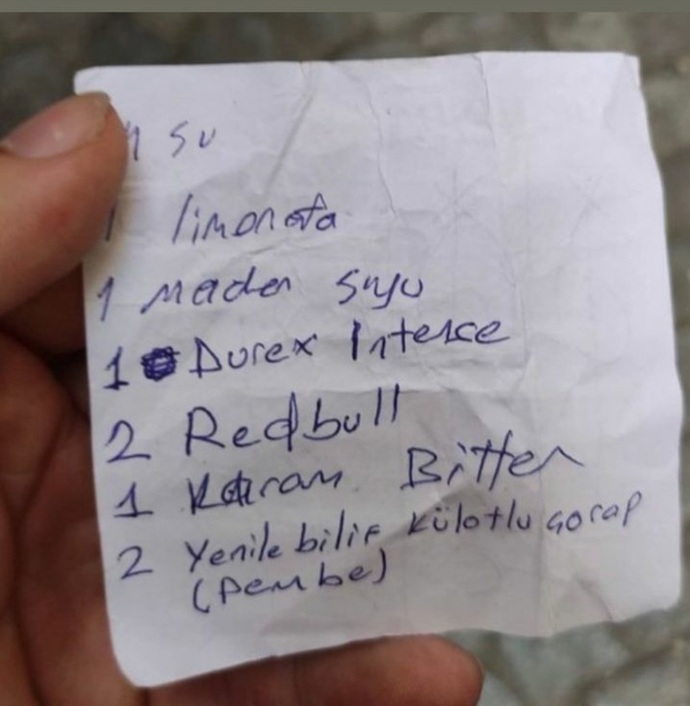 1 su
1 limonata
1 maden suyu
1 Durex Intense
2 Redbull
1 Karam Bitter
2 Yenilebilir külotlu çorap
(pembe)